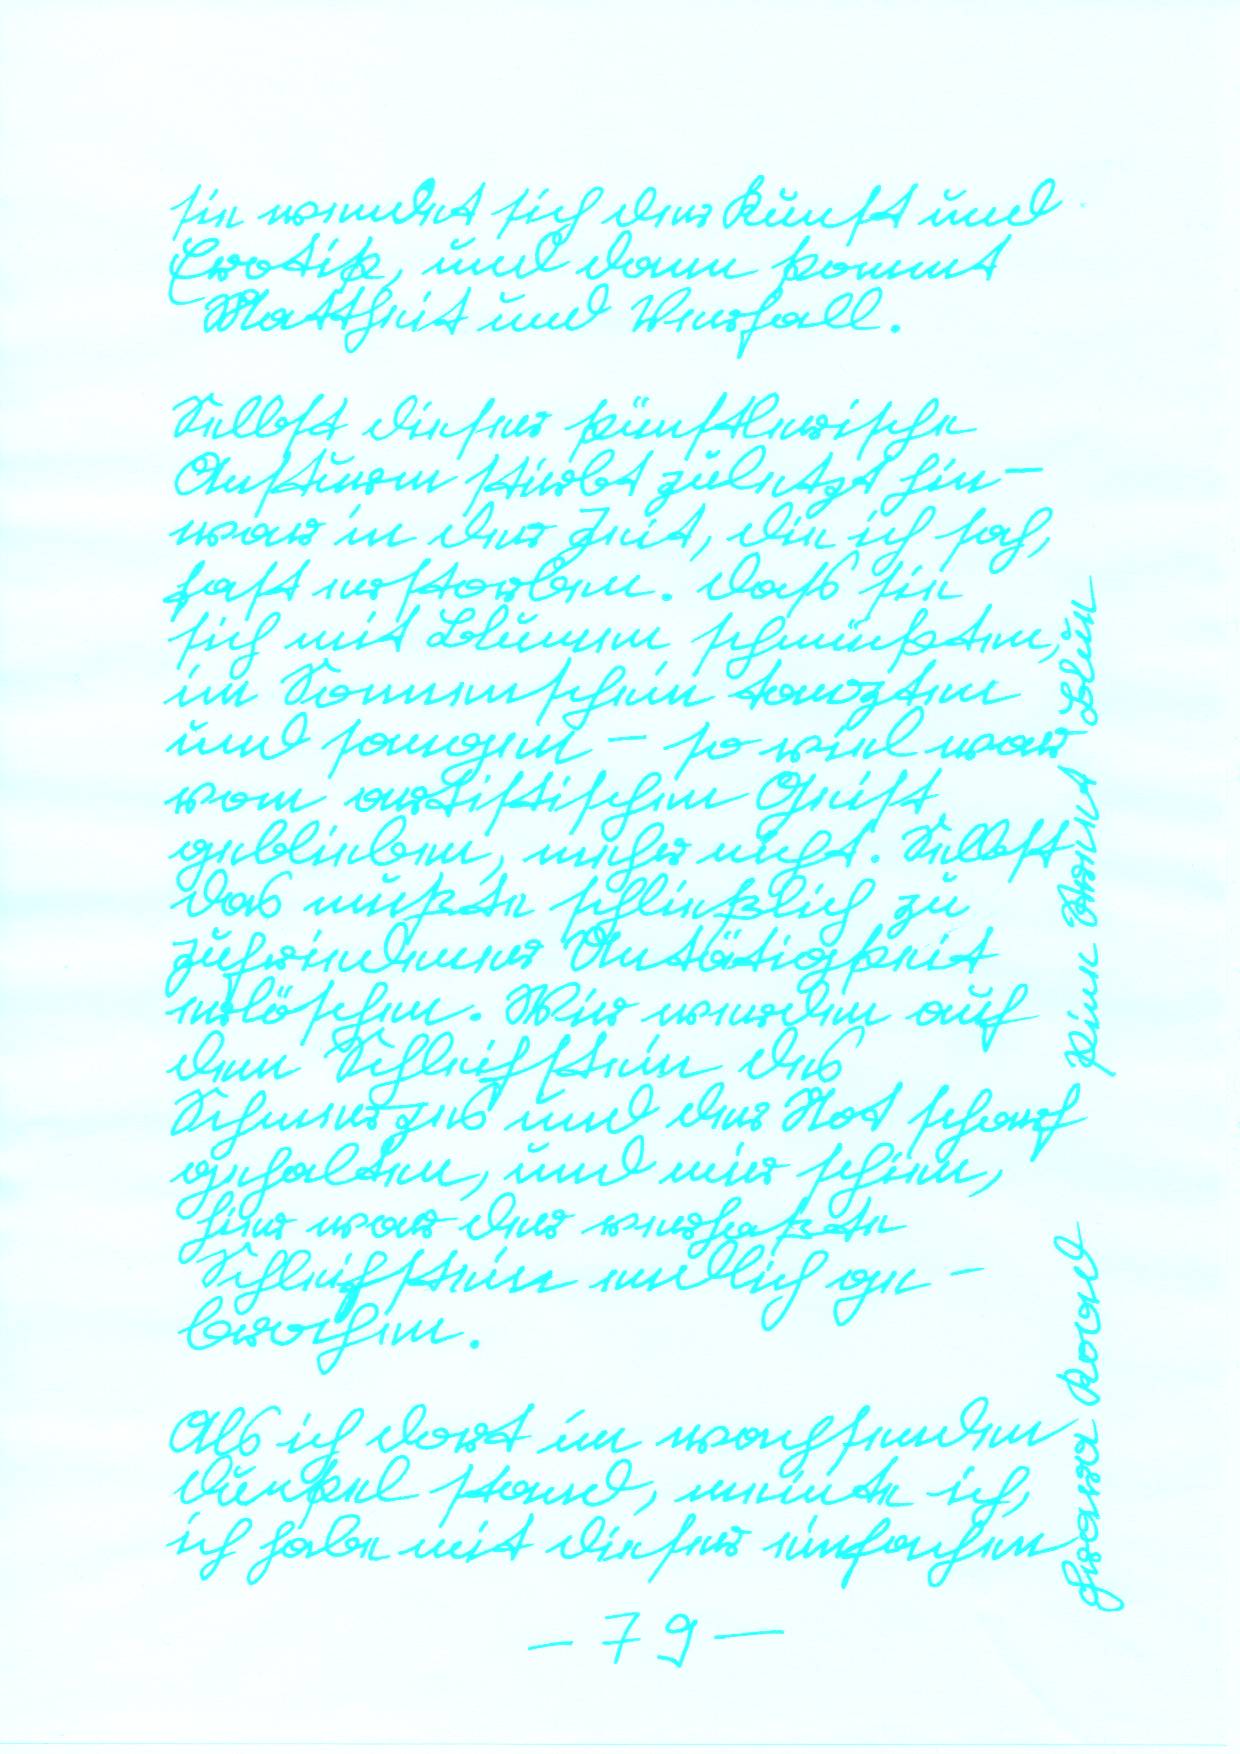 sie wendet sich der Kunst und
Erotik, und dann kommt
Mattheit und Verfall.
Selbst dieser künstlerische
Ansturm stirbt zuletzt hin –
war in der Zeit, die ich sah,
fast erstorben. Daß sie
sich mit Blumen schmückten,
im Sonnenschein tanzten
und sangen – so viel war
vom artistischen Geist
geblieben, mehr nicht. Selbst
das mußte schließlich zu
zufriedener Untätigkeit
erlöschen. Wir werden auf
dem Schleifstein des
Schmerzes und der Not scharf
gehalten, und mir schien,
hier war der verhaßte
Schleifstein endlich ge-
brochen.
Als ich dort im wachsenden
Dunkel stand, meinte ich,
ich habe mit dieser einfachen
– 79 –